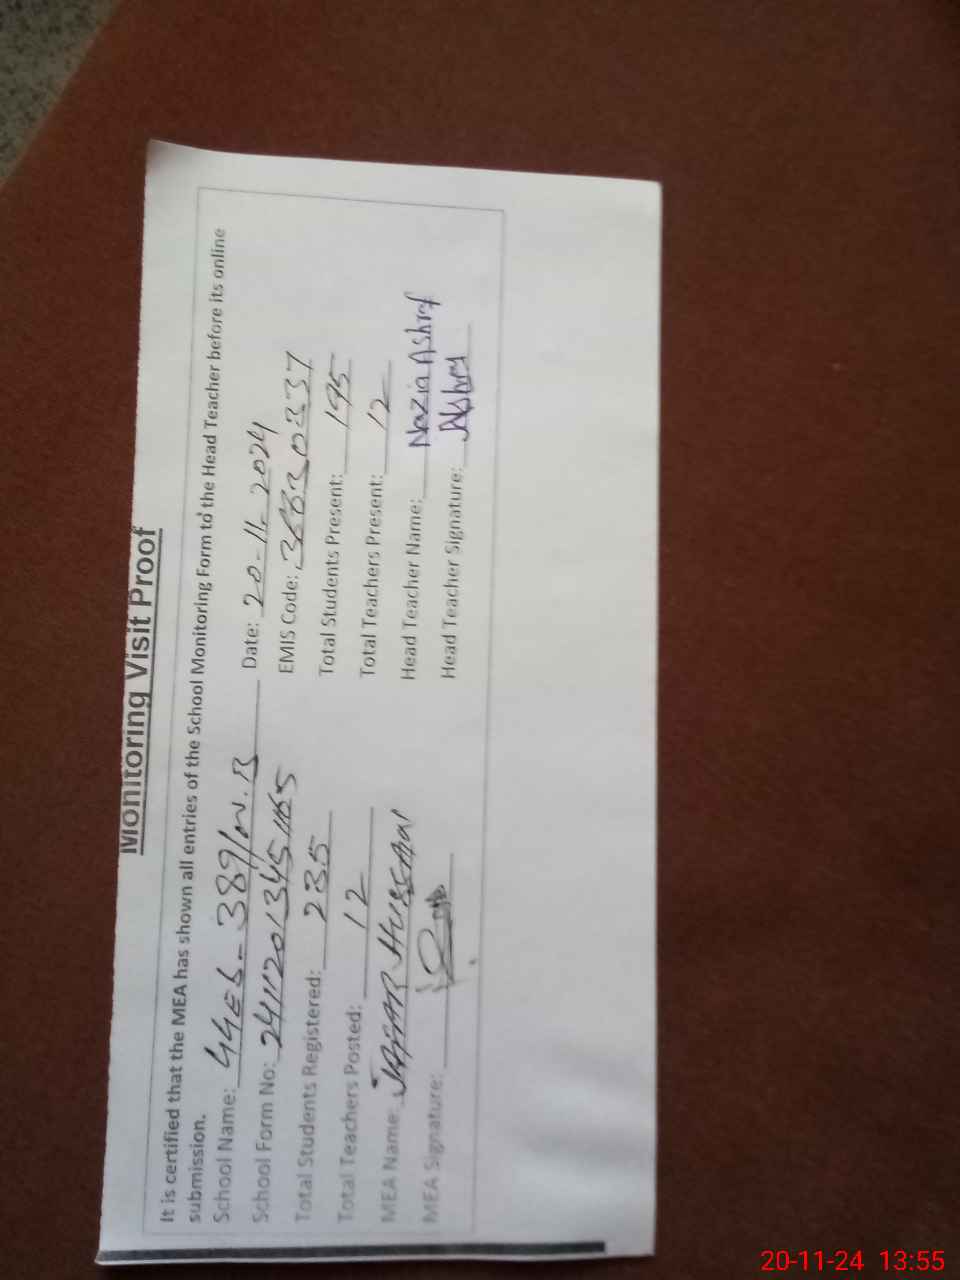 Monitoring Visit Proof
It is certified that the MEA has shown all entries of the School Monitoring Form to the Head Teacher before its online
submission.
School Name: 389/W.B Date: 20-11-2024
School Form No: 24112013451165 EMIS Code: 36630337
Total Students Registered: 235 Total Students Present: 195
Total Teachers Posted: 12 Total Teachers Present: 12
MEA Name: JAFFAR HUSSAIN Head Teacher Name: Nazia Ashraf
MEA Signature: Head Teacher Signature: Ashraf
20-11-24 13:55